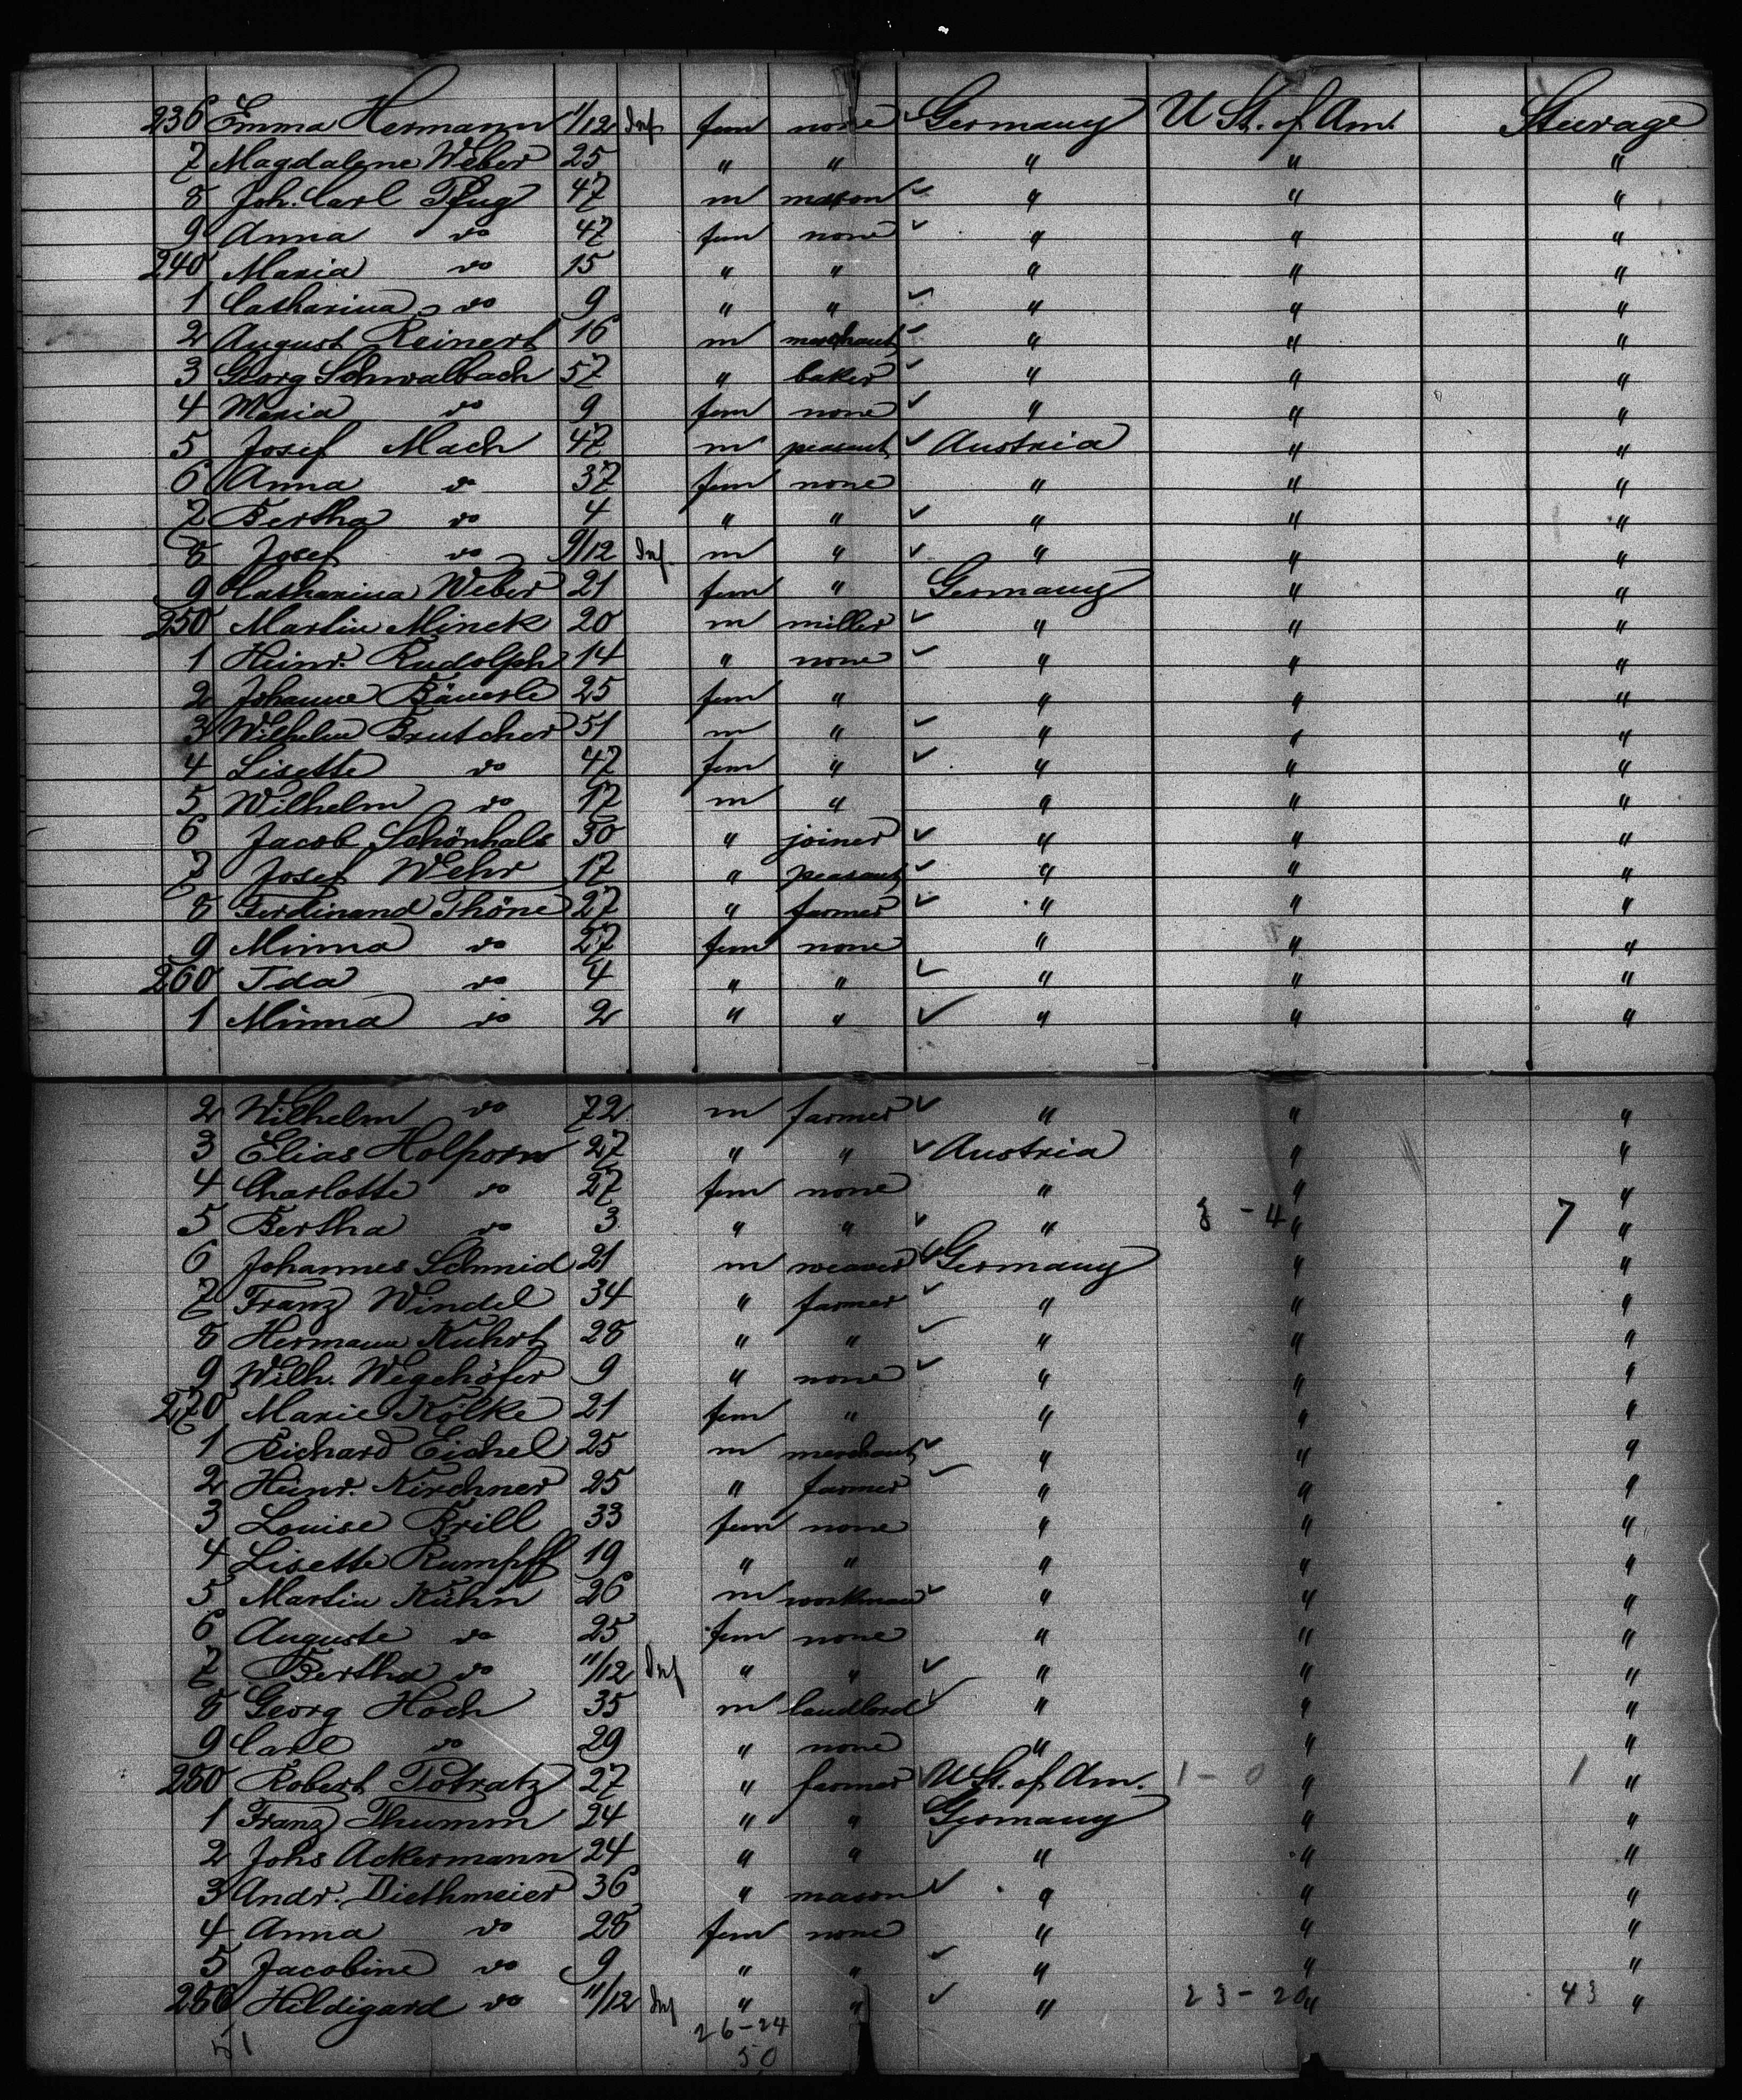 236 Emma Hermann 11/12 Inf fem none Germany U St. of Am. Steerage
7 Magdalene Weber 25 " " " " "
8 Joh. Carl Pflug 47 m mason " " "
9 Anna do 47 fem none " " "
240 Maria do 15 " " " " "
1 Catharina do 9 " " " " "
2 August Reinert 16 m merchant " " "
3 Georg Schwalbach 57 " baker " " "
4 Maria do 9 fem none " " "
5 Josef Mach 47 m peasant Austria " "
6 Anna do 37 fem none " " "
7 Bertha do 4 " " " " "
8 Josef do 9/12 Inf. m " " " "
9 Catharina Weber 21 fem " Germany " "
250 Martin Minek 20 m miller " " "
1 Heinr. Rudolph 14 " none " " "
2 Johanne Bäuerle 25 fem " " " "
3 Wilhelm Brutcher 51 m " " " "
4 Lisette do 47 fem " " " "
5 Wilhelm do 17 m " " " "
6 Jacob Schönhals 30 " joiner " " "
7 Josef Wehr 17 " peasant " " "
8 Ferdinand Thöne 27 " farmer " " "
9 Minna do 27 fem none " " "
260 Ida do 4 " " " " "
1 Minna do 2 " " " " "
2 Wilhelm do 72 m farmer " " "
3 Elias Holporn 27 " " Austria " "
4 Charlotte do 27 fem none " " "
5 Bertha do 3 " " " 3 - 4 " 7 "
6 Johannes Schmid 21 m weaver Germany " "
7 Franz Windel 34 " farmer " " "
8 Hermann Kuhrt 28 " " " " "
9 Wilh. Wegehöfer 9 " none " " "
270 Marie Kölke 21 fem " " " "
1 Richard Eichel 25 m merchant " " "
2 Heinr. Kirchner 25 " farmer " " "
3 Louise Brill 33 fem none " " "
4 Lisette Rumpff 19 " " " " "
5 Martin Kühn 26 m workman " " "
6 Auguste do 25 fem none " " "
7 Bertha do 11/12 Inf " " " " "
8 Georg Hoch 35 m landlord " " "
9 Carl do 29 " none " " "
280 Robert Potratz 27 " farmer U St. of Am. 1 - 0 " 1 "
1 Franz Thumm 24 " " Germany " "
2 Johs Ackermann 24 " " " " "
3 Andr. Diethmeier 36 " mason " " "
4 Anna do 28 fem none " " "
5 Jacobine do 9 " " " " "
286 Hildigard do 11/12 Inf " " " 23 - 20 " 43 "
51 26 - 24
50